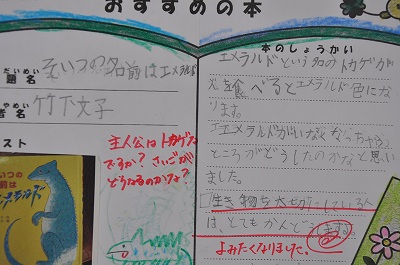 おすすめの本
だいめい
題名
そいつの名前はエメラルド
しゃめい
者名
竹下文子
スト
主人公はトカゲ
ですか？さいごが
どうなるのかな？
本のしょうかい
エメラルドという名のトカゲが
を食べるとエメラルド色にな
ります。
エメラルドがいなくなっちゃう
ところがどうしたのかなと思い
ました。
生き物を大切にしている人
は、とてもかんどうします。
よみたくなりました。